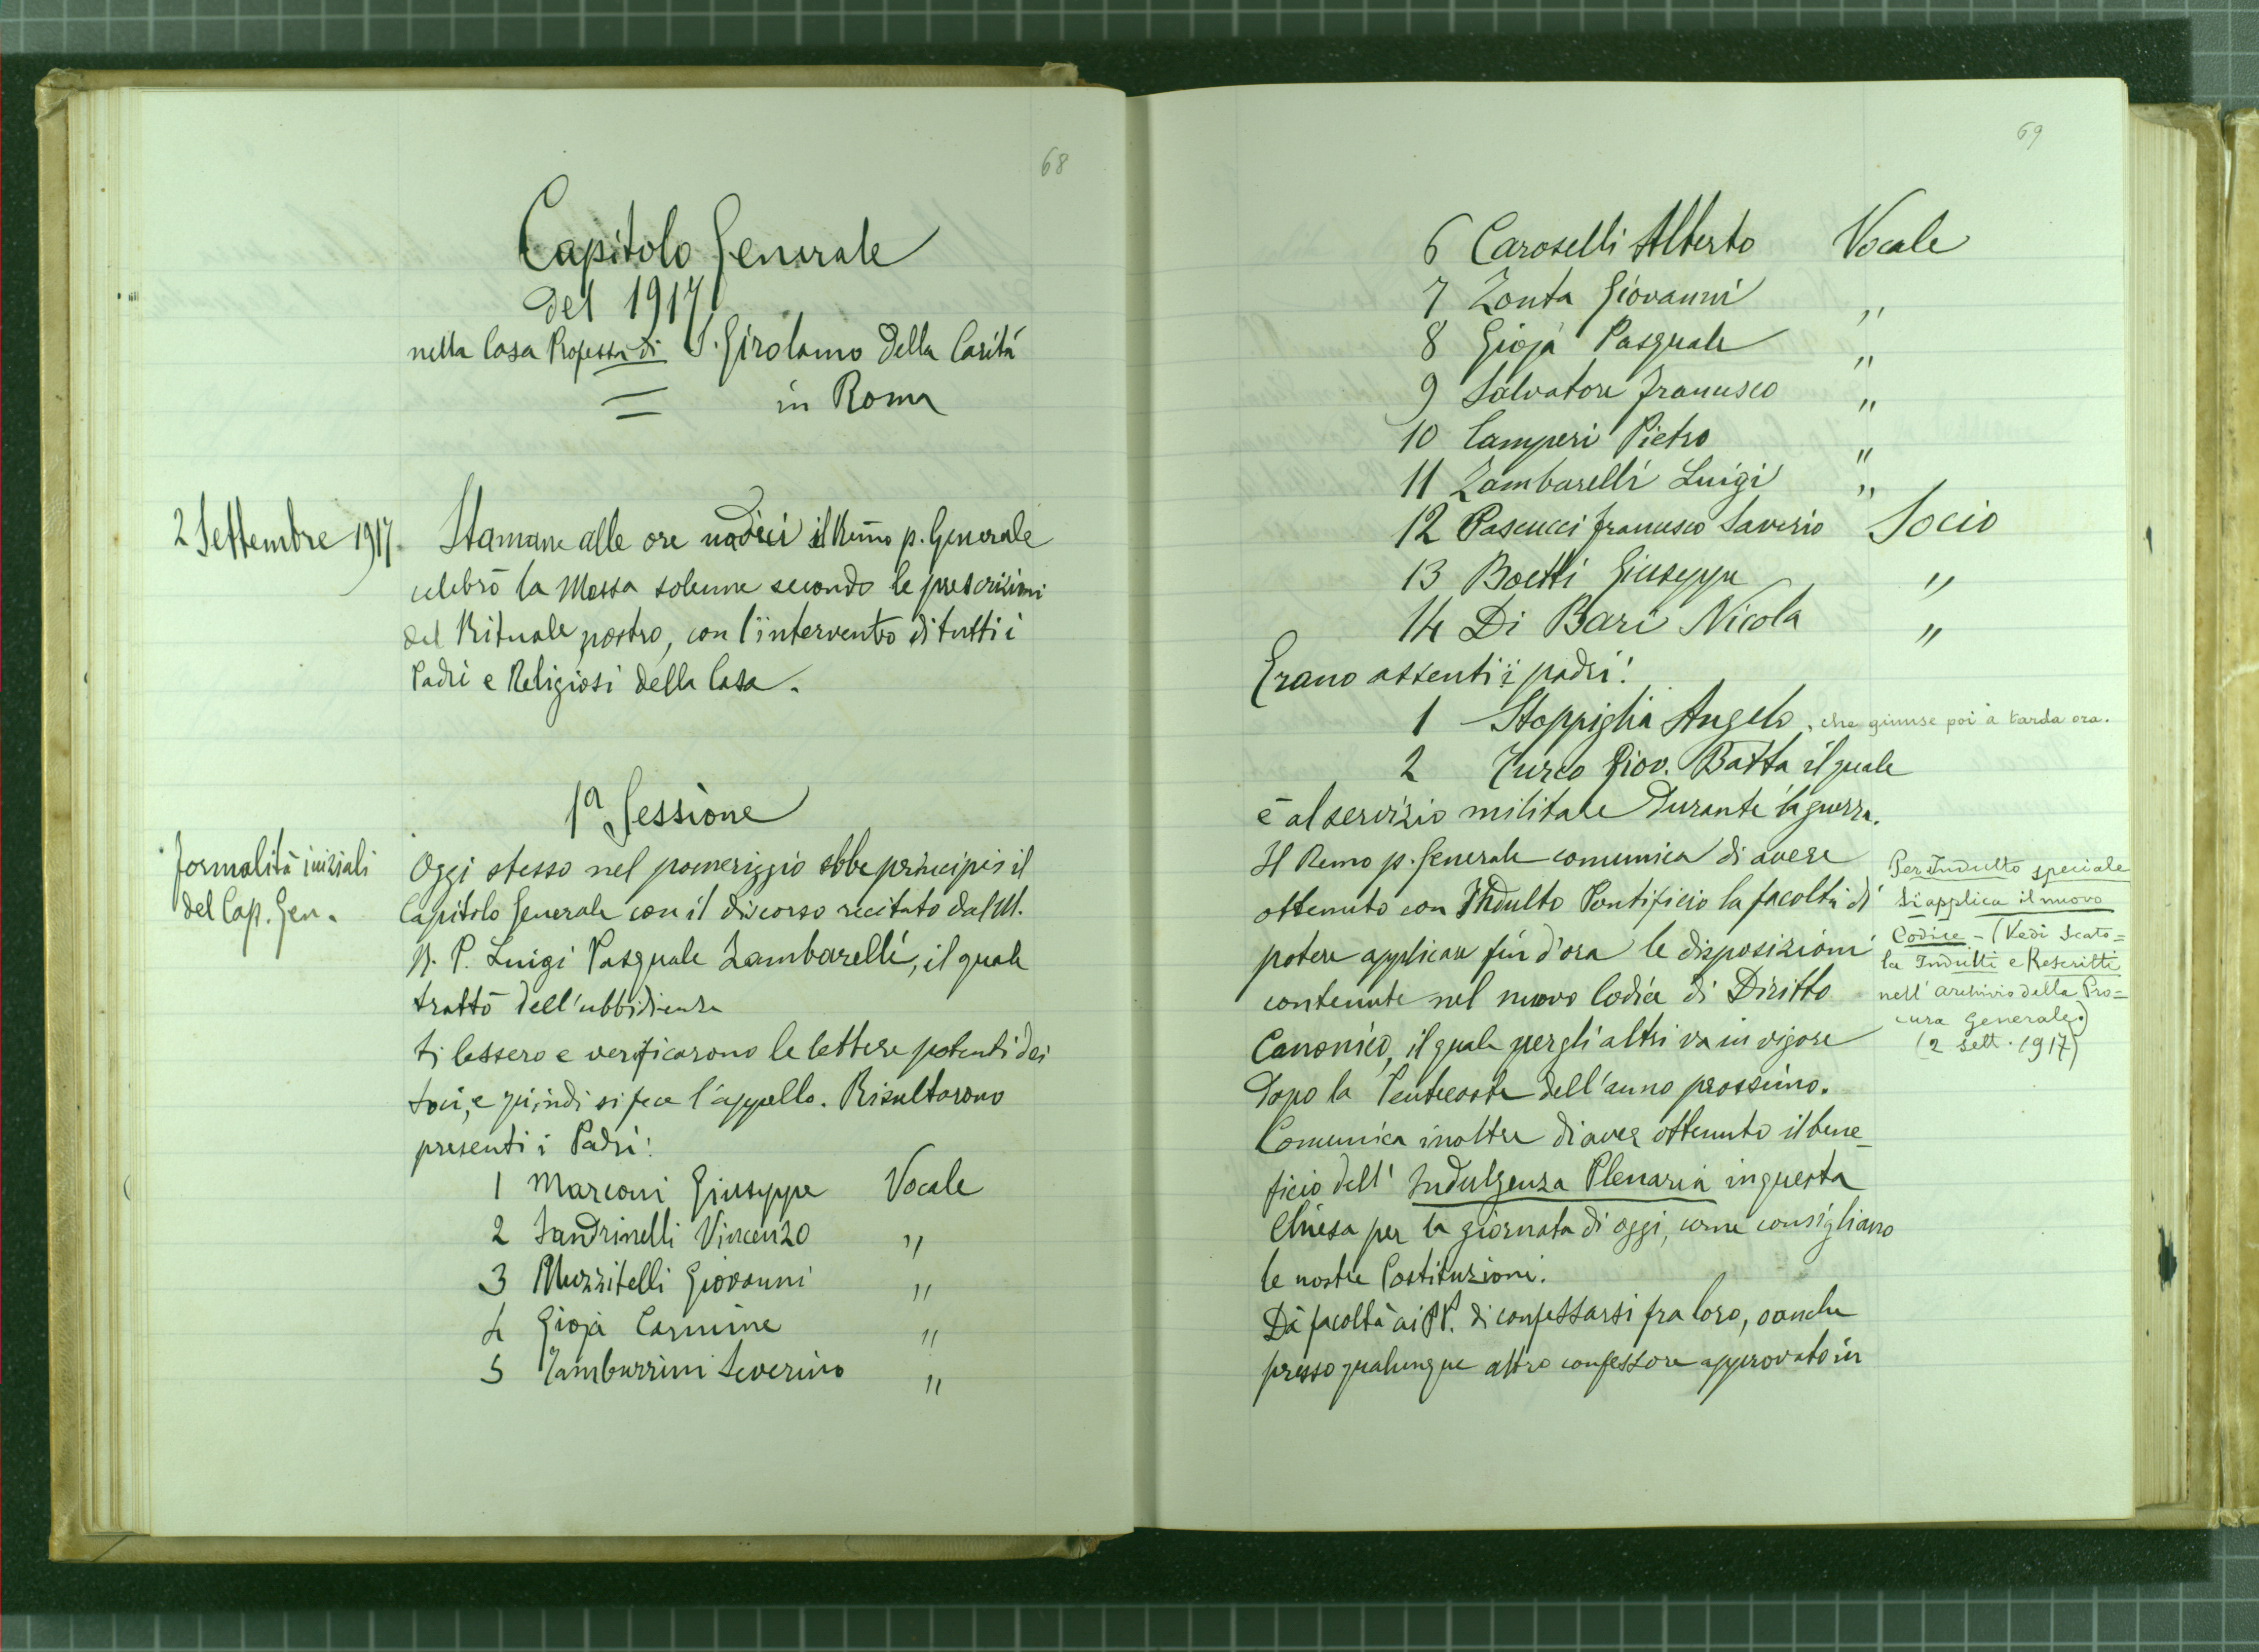 68
Capitolo Generale
del 1917
nella Casa Professa di S. Girolamo della Carità
in Roma
2 Settembre 1917.
Stamane alle ore undici il Rm̃o p. Generale
celebrò la Messa solenne secondo le prescrizioni
del Rituale nostro, con l'intervento di tutti i
Padri e Religiosi della Casa.
1ª Sessione
formalità iniziali
del Cap. Gen.
Oggi stesso nel pomeriggio ebbe principio il
Capitolo Generale con il discorso recitato dal M.
R. P. Luigi Pasquale Zambarelli, il quale
trattò dell'ubbidienza
Si lessero e verificarono le lettere patenti dei
Soci, e quindi si fece l'appello. Risultarono
presenti i Padri:
1 Marconi Giuseppe Vocale
2 Sandrinelli Vincenzo "
3 Muzzitelli Giovanni "
4 Gioja Carmine "
5 Tamburrini Severino "
69
6 Caroselli Alberto Vocale
7 Zonta Giovanni "
8 Gioja Pasquale "
9 Salvatore Francesco "
10 Camperi Pietro "
11 Zambarelli Luigi "
12 Pascucci Francesco Saverio Socio
13 Boetti Giuseppe "
14 Di Bari Nicola "
Erano assenti i padri:
1 Stoppiglia Angelo, che giunse poi a tarda ora.
2 Turco Giov. Batta il quale
è al servizio militare durante la guerra.
Il Rmo p. Generale comunica di avere
ottenuto con Indulto Pontificio la facoltà di
potere applicare fin d'ora le disposizioni
contenute nel nuovo Codice di Diritto
Canonico, il quale per gli altri va in vigore
dopo la Pentecoste dell'anno prossimo.
Comunica inoltre di aver ottenuto il bene-
ficio dell' Indulgenza Plenaria in questa
Chiesa per la giornata di oggi, come consigliano
le nostre Costituzioni.
Dà facoltà ai PP. di confessarsi fra loro, o anche
presso qualunque altro confessore approvato in
Per Indulto speciale
si applica il nuovo
Codice - (Vedi Scato=
la Indulti e Rescritti
nell' archivio della Pro=
cura Generale.)
(2 Sett. 1917)